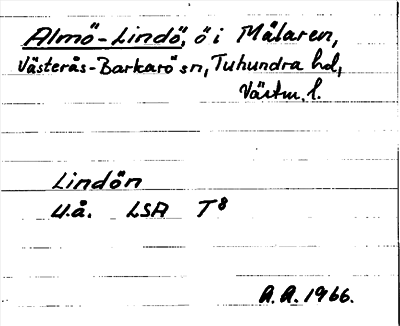 Almö-Lindö, ö i Mälaren,
Västerås-Barkarö sn, Tuhundra hd,
Västm. l.
Lindön
U.å. LSA T8
A.A. 1966.